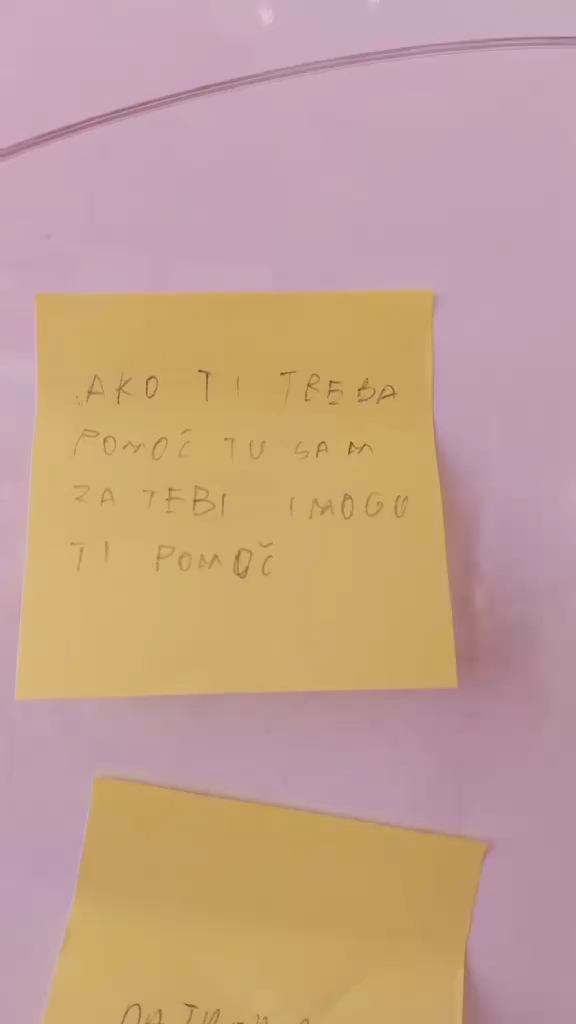 AKO TI TREBA
POMOĆ TU SAM
ZA TEBI I MOGU
TI POMOČ